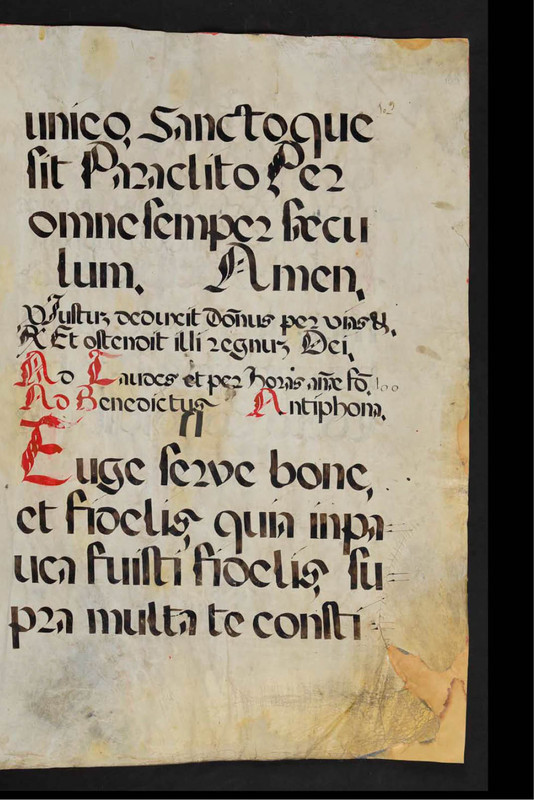 unico, Sanctoque
sit Paraclito Per
omne semper sæcu
lum. Amen.
℣ Justuz deduxit Dom̄nus per vias &.
℟ Et ostendit illi regnuz Dei.
Ad Laudes et per horas
Ad Benedictus Antiphona.
Euge serve bone,
et fidelis, quia inpa
uca fuisti fidelis, su
pra multa te consti